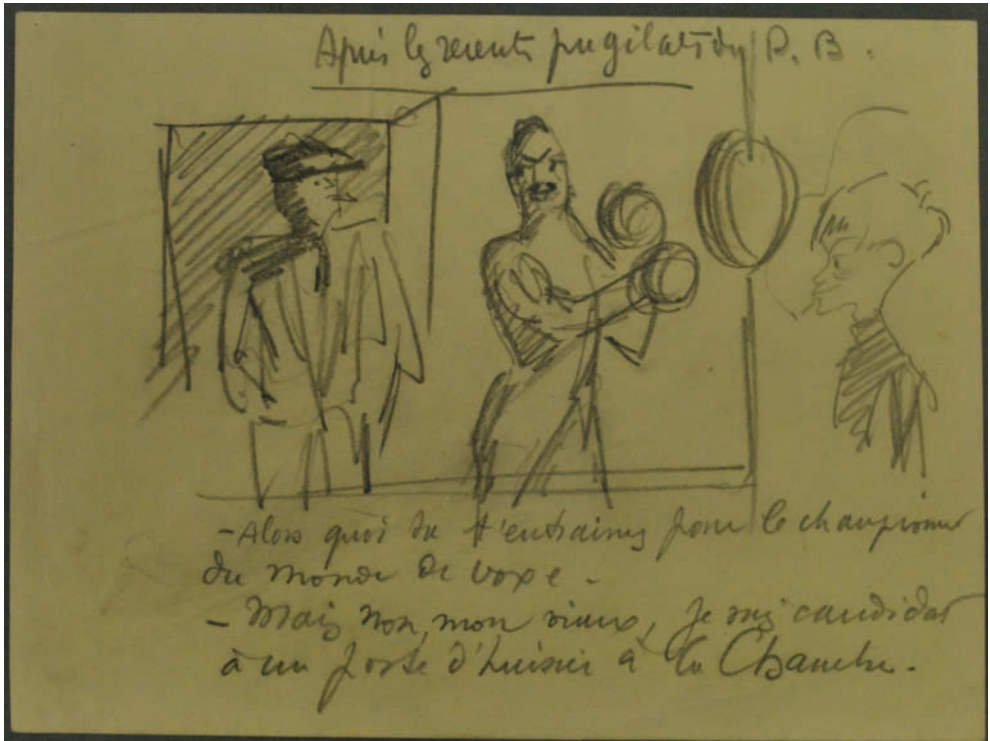 Après les récents pugilats du P. B.
- Alors quoi tu t'entraines pour le championnat
du monde de boxe -
- Mais non, mon vieux, je suis candidat
à un poste d'huissier à la Chambre.